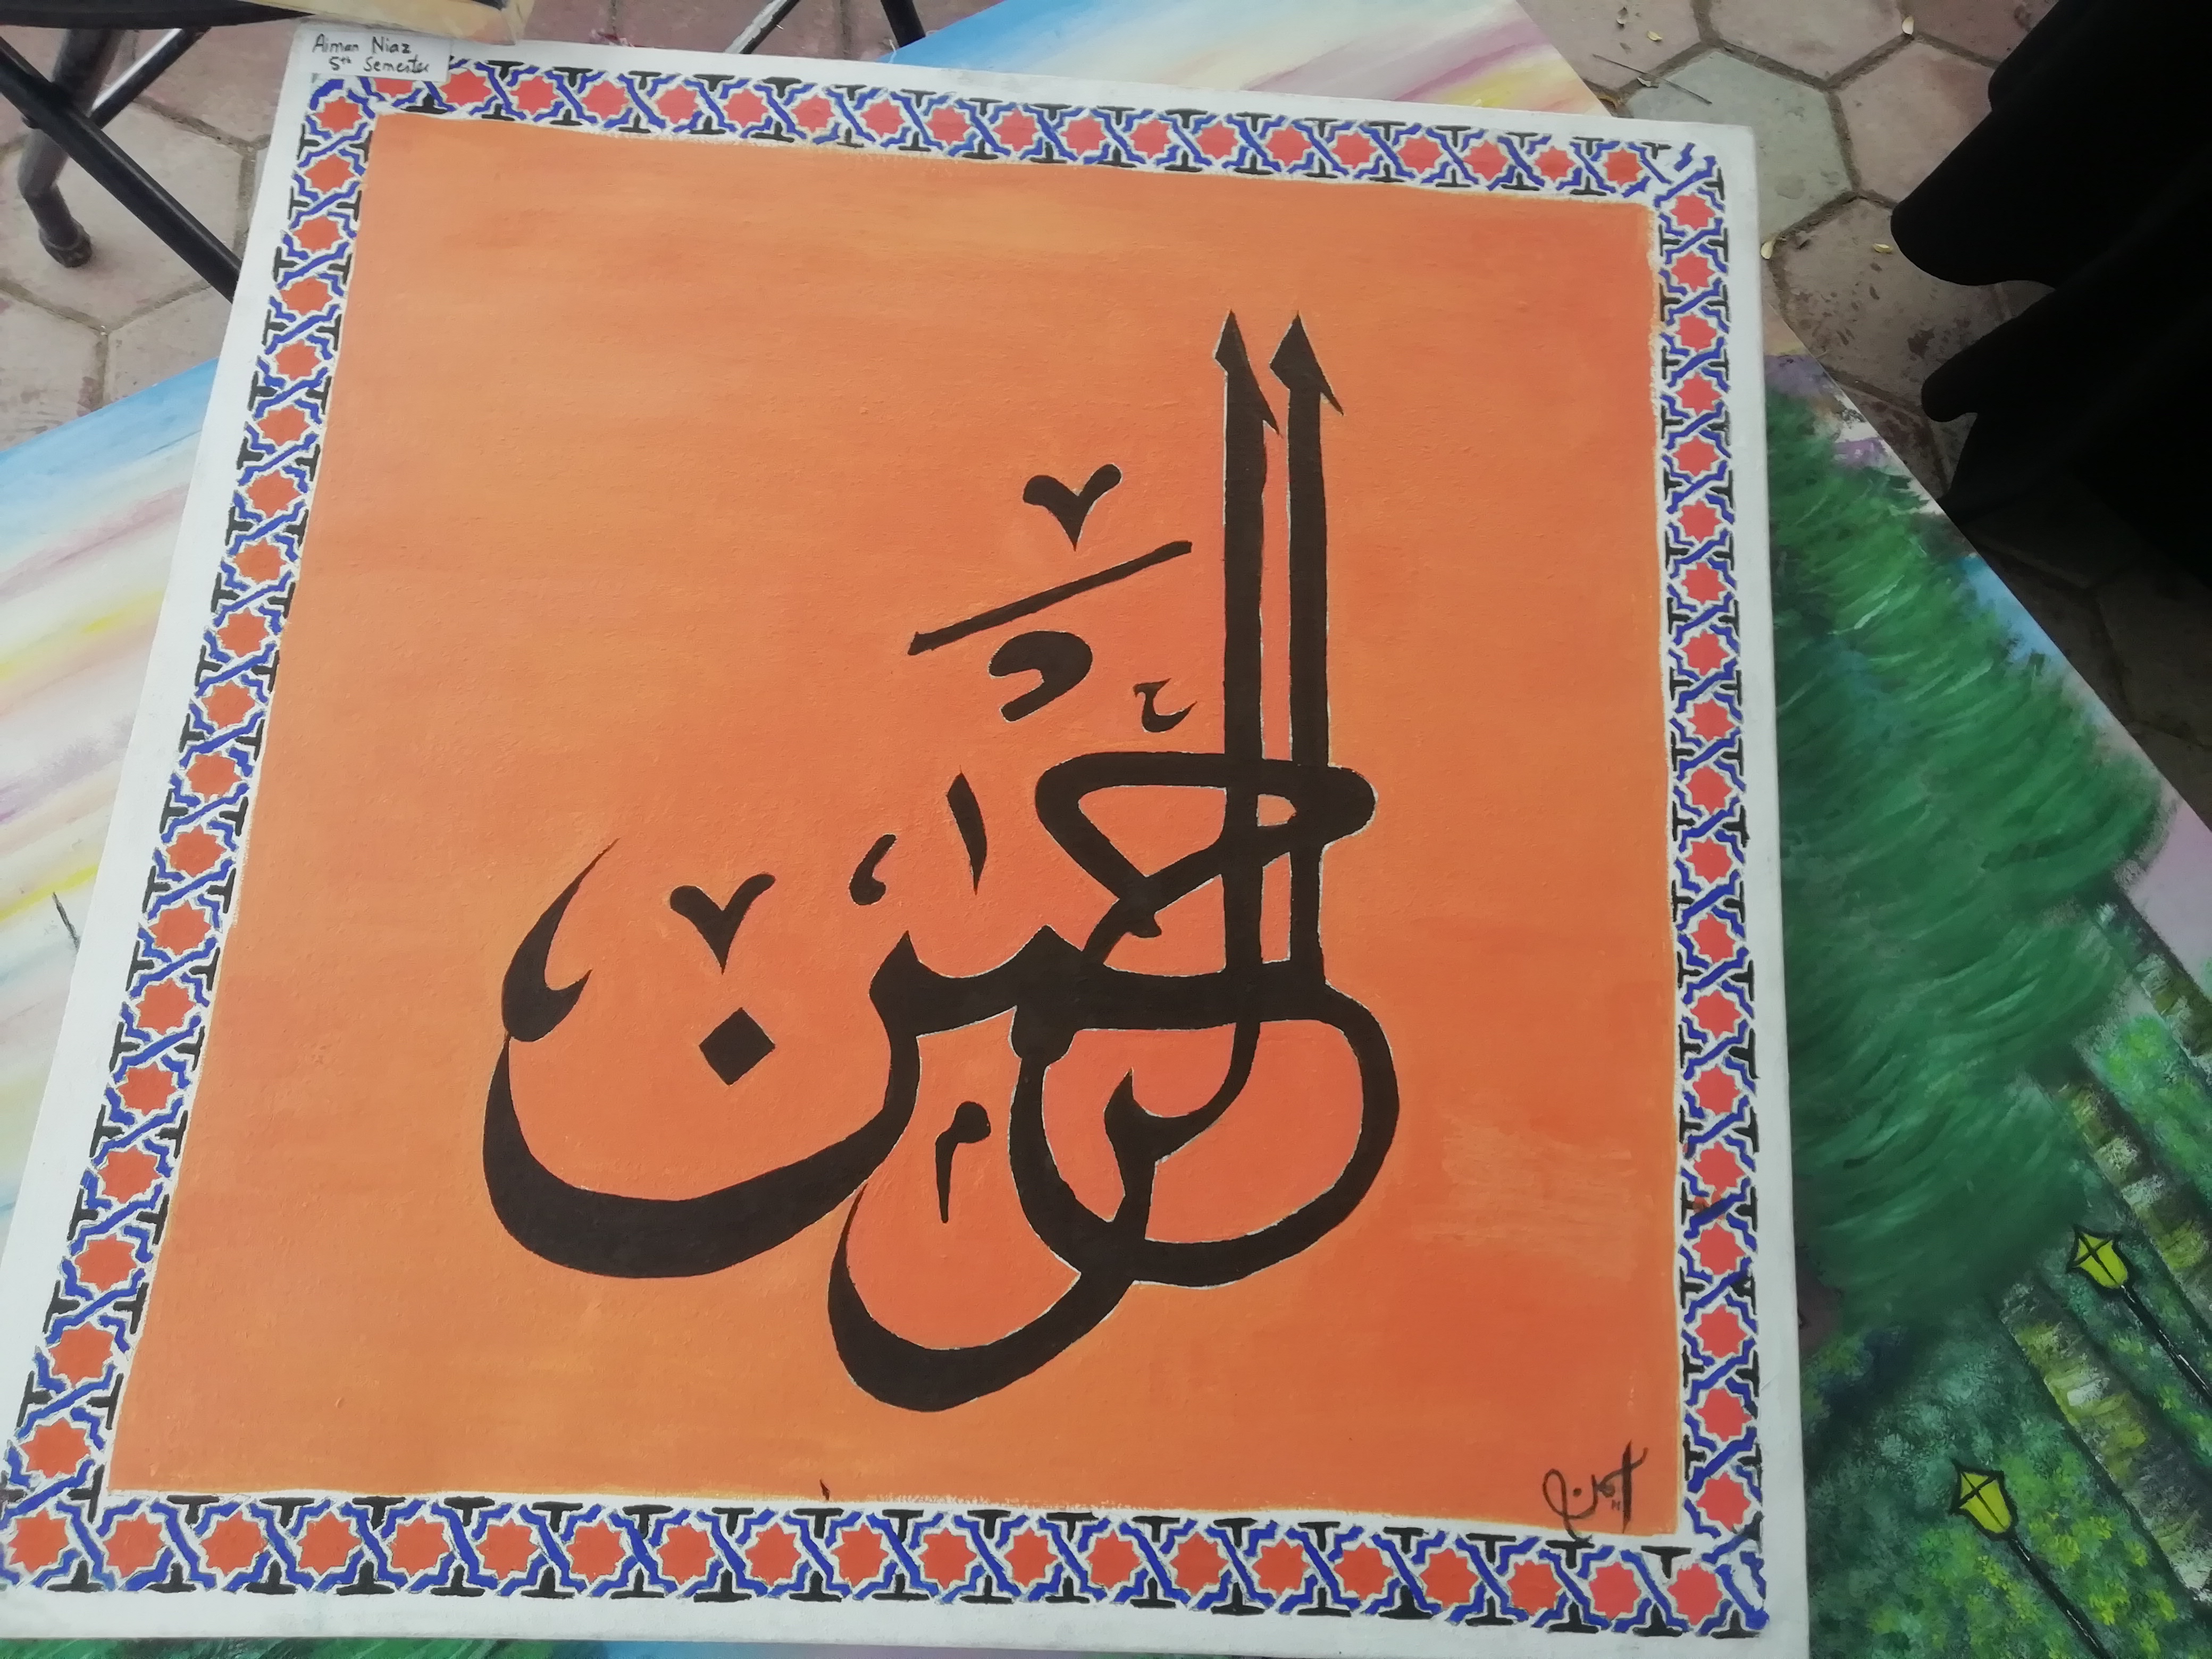 Aiman Niaz
5th Semester
الرحمن